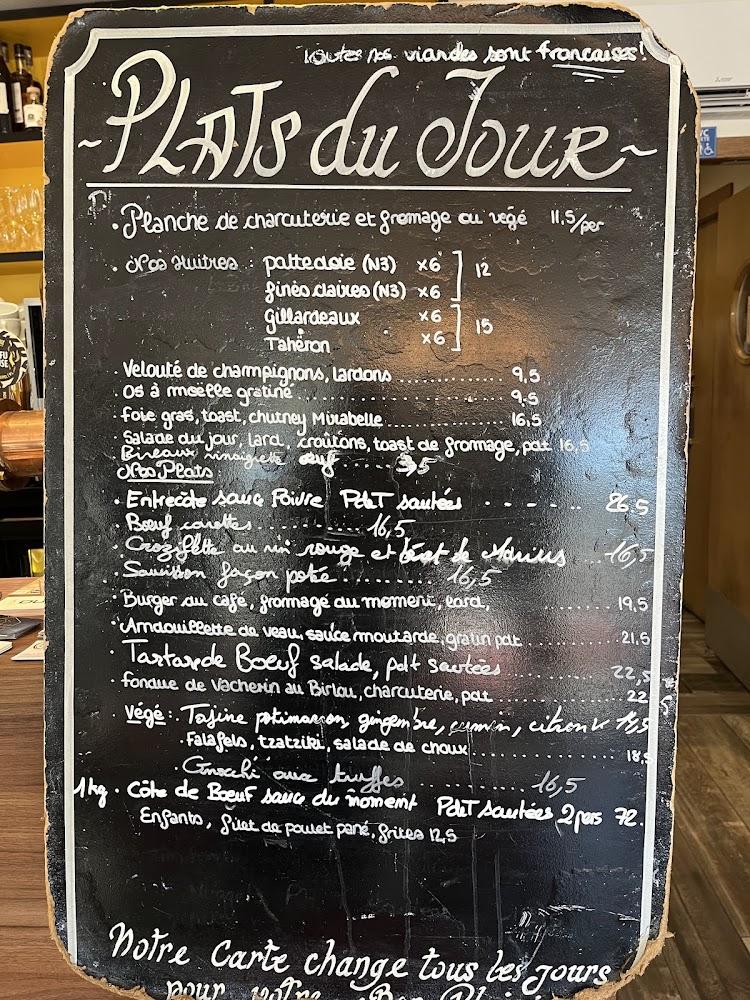 Toutes nos viandes sont françaises!
~PLATS du JOUR~
. Planche de charcuterie et fromage ou végé 11,5/per
. Nos Huitres : patte doie (N3) x6 ] 12
fines claires (N3) x6
gillardeaux x6 ] 15
Tahéron x6
. Velouté de champignons, lardons .............. 9,5
. Os à moëlle gratiné .............. 9,5
. foie gras, toast, chutney Mirabelle .............. 16,5
. Salade du jour, lard, croûtons, toast de fromage, pdt 16,5
vinaigrette oeuf ......
Nos Plats
. Entrecôte sauce Poivre PdeT sautées - - - - - - 26,5
. Boeuf carottes .............. 16,5
. Croziflette au vin rouge et ... 16,5
. façon potée .......... 16,5
. Burger du café, fromage du moment, lard, .......... 19,5
. Andouillette de veau, sauce moutarde, gratin pdt .......... 21,5
. Tartare de Boeuf salade, pdt sautées .......... 22,5
. fondue de Vacherin au Birlou, charcuterie, pdt .......... 22
végé : . Tajine potimarron, gingembre, cumin, citron
. falafels, tzatziki, salade de choux .......... 18,5
. Gnocchi aux truffes .......... 16,5
1kg . Côte de Boeuf sauce du moment PdeT sautées 2 pers 72.
Enfants, filet de poulet pané, frites 12,5
Notre Carte change tous les jours
pour votre